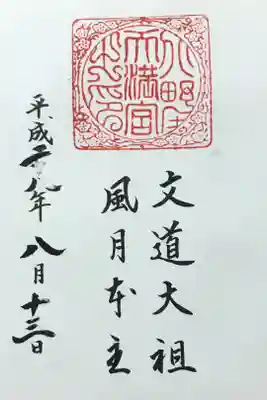 北野
天満宮
文道大祖
風月本主
平成二九年 八月十三日